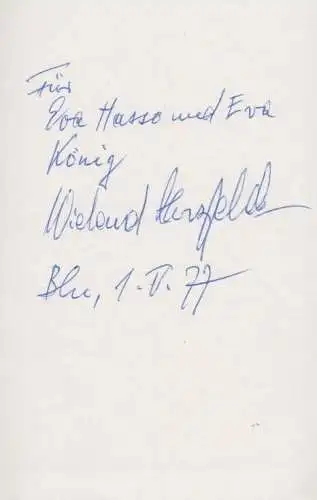 Für
Eva Hasso und Eva
König
Wieland Herzfelde
Bln, 1.V.77